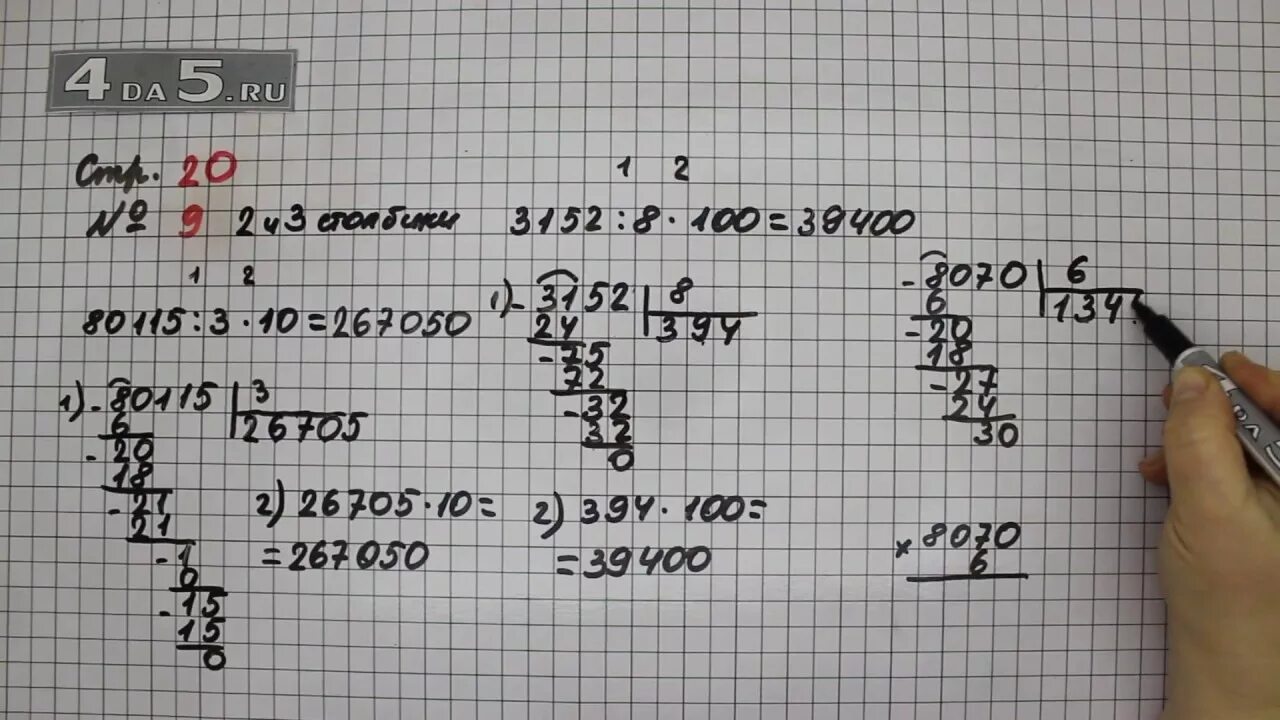 4 DA 5.RU
Стр. 20
№ 9 2 и 3 столбики
1 2
80115 : 3 · 10 = 267050
1) - 80115 | 3
6 | 26705
- 20
18
- 21
21
- 1
0
- 15
15
0
2) 26705 · 10 =
= 267050
1 2
3152 : 8 · 100 = 39400
1) - 3152 | 8
24 | 394
- 75
72
- 32
32
0
2) 394 · 100 =
= 39400
- 8070 | 6
6 | 134
- 20
18
- 27
24
30
× 8070
6